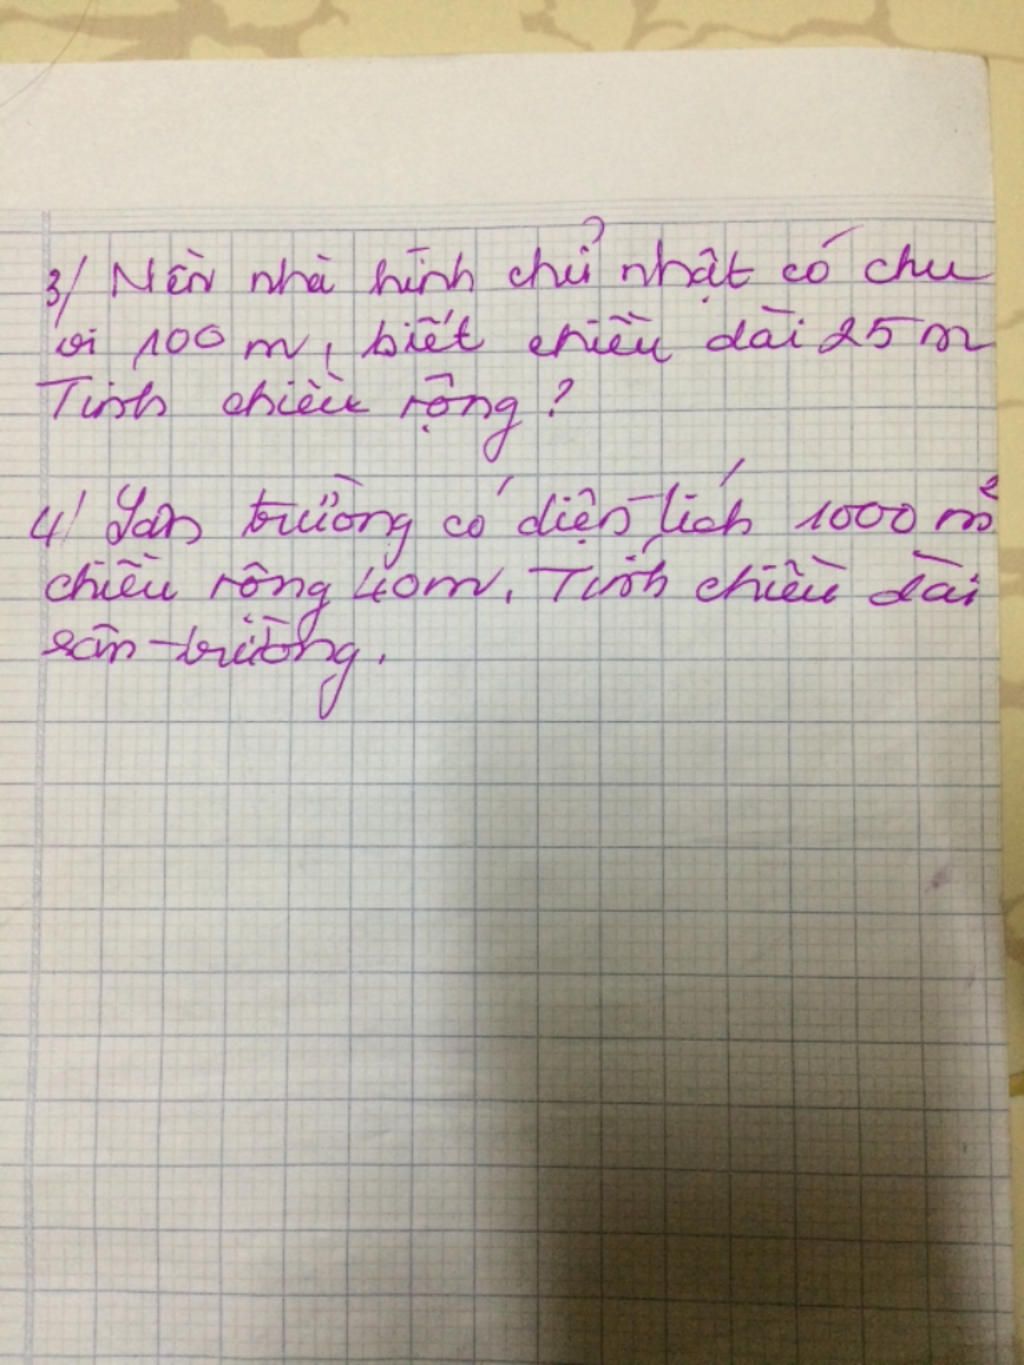 3/ Nền nhà hình chử nhật có chu
vi 100 m, biết chiều dài 25 m
Tính chiều rộng ?
4/ Sân trường có diện tích 1000 m²
chiều rộng 40m. Tính chiều dài
sân trường.